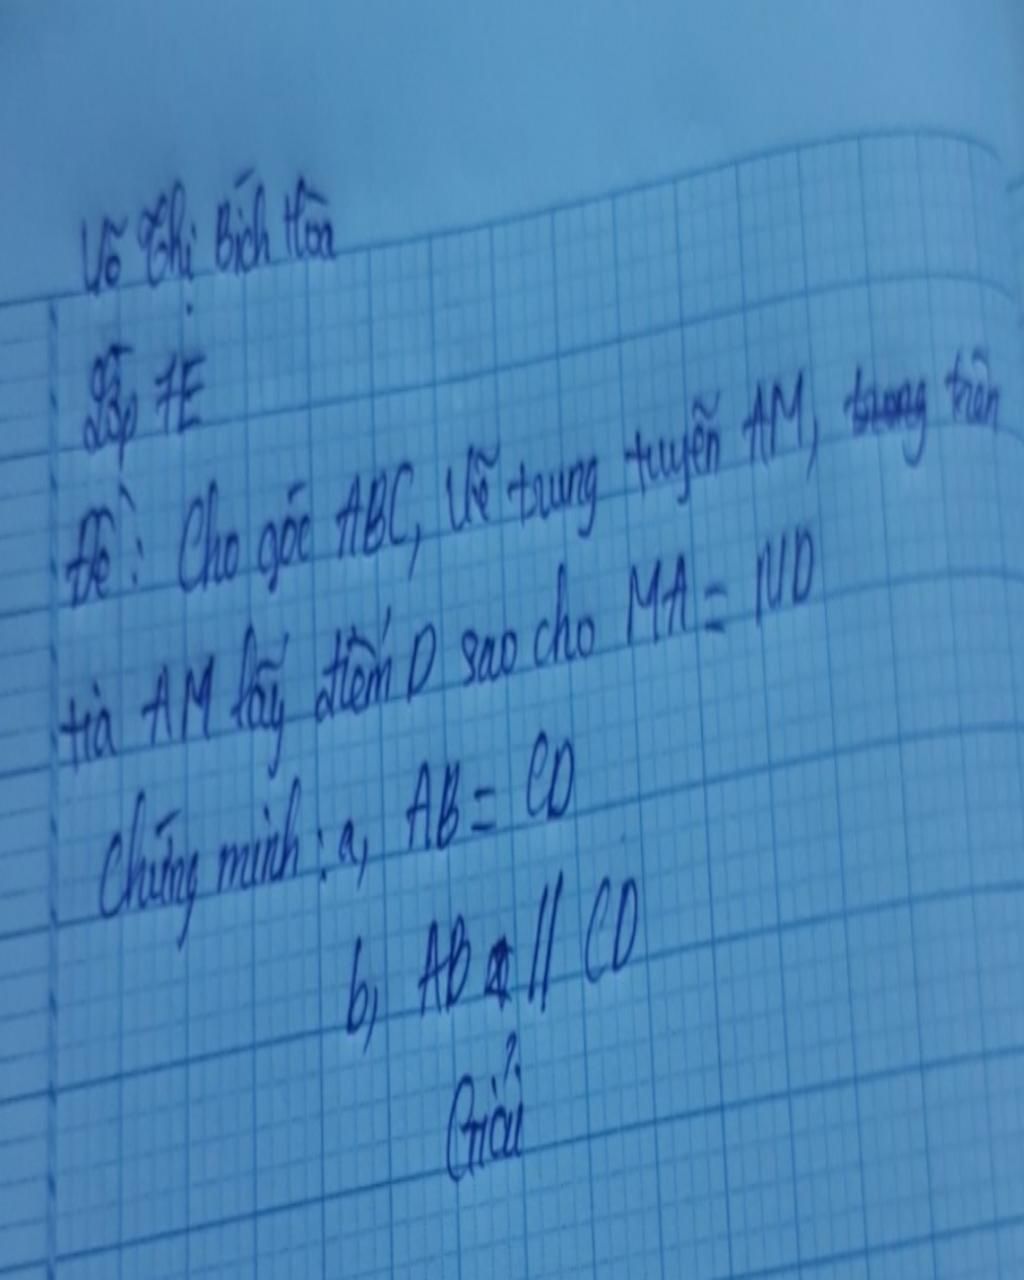 Võ Thị Bích Hòa
Lớp 7E
Đề: Cho góc ABC, Vẽ trung tuyến AM, trên
tia AM lấy điểm D sao cho MA = MD
Chứng minh: a, AB = CD
b, AB // CD
Giải